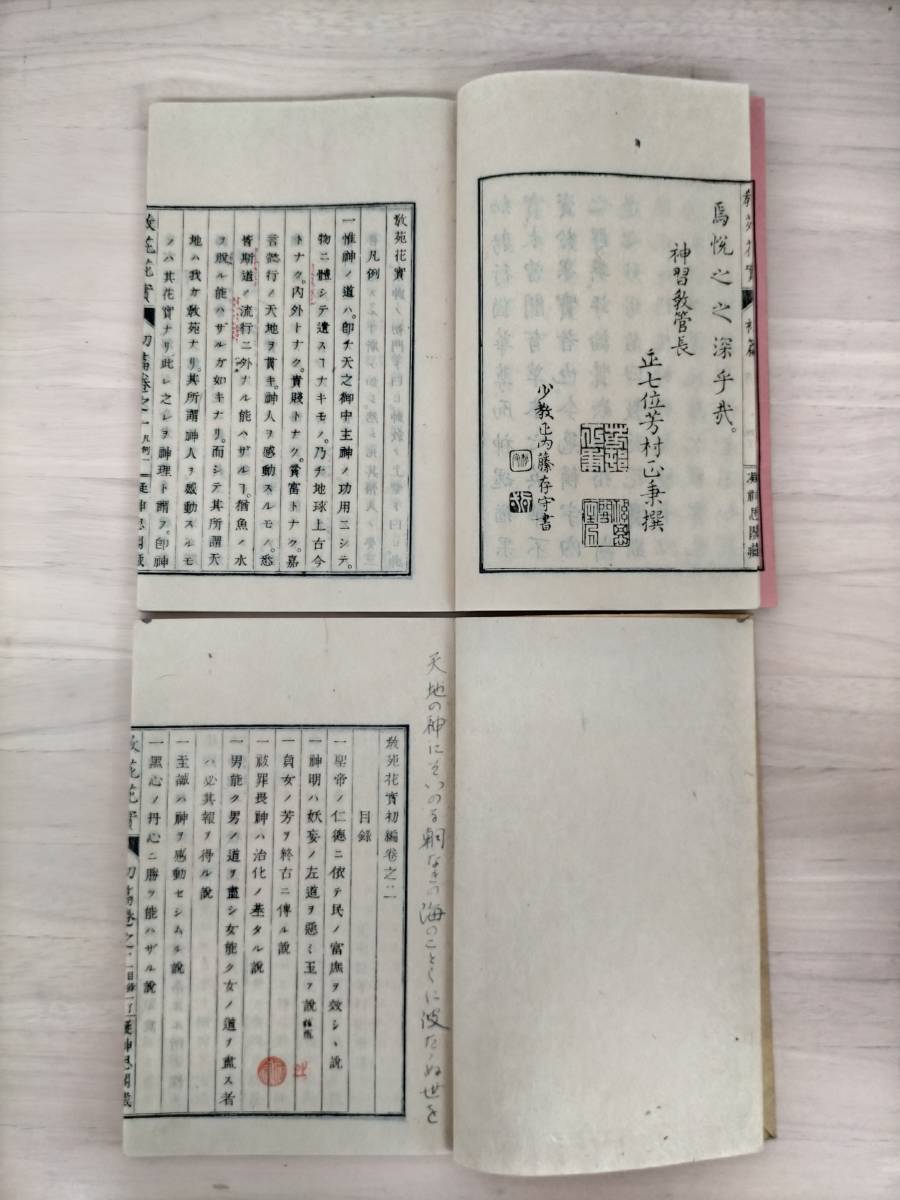 焉悦之之深乎哉。
神習教管長
正七位芳村正秉撰
少教正内藤存守書
教苑花實
凡例
一惟神ノ道ハ。卽チ天之御中主神ノ功用ニシテ。
物ニ體シテ遺スヿナキモノ。乃チ地球上古今
トナク。内外トナク。貴賤トナク。貧富トナク。嘉
言懿行ノ天地ヲ貫キ。神人ヲ感動スルモノ。悉
皆斯道ノ流行ニ外ナル能ハザルヿ。猶魚ノ水
ヲ脱ル能ハザルガ如キナリ。而シテ其所謂天
地ハ我ガ敎苑ナリ。其所謂神人ヲ感動スルモ
ノハ其花實ナリ。此レ之レヲ神理ト謂フ。卽神
天地の神にそいのる朝なきの海のことくに波たゝぬ世を
教苑花實初編卷之二
目錄
一聖帝ノ仁德ニ依テ民ノ富庶ヲ效シヽ說
一神明ハ妖妄ノ左道ヲ惡ミ玉フ說
一貞女ノ芳ヲ終古ニ傳ル說
一祓罪畏神ハ治化ノ基タル說
一男能ク男ノ道ヲ盡シ女能ク女ノ道ヲ盡ス者
ハ必其報ヲ得ル說
一至誠ハ神ヲ感動セシムル說
一黑心ノ丹心ニ勝ツ能ハザル說